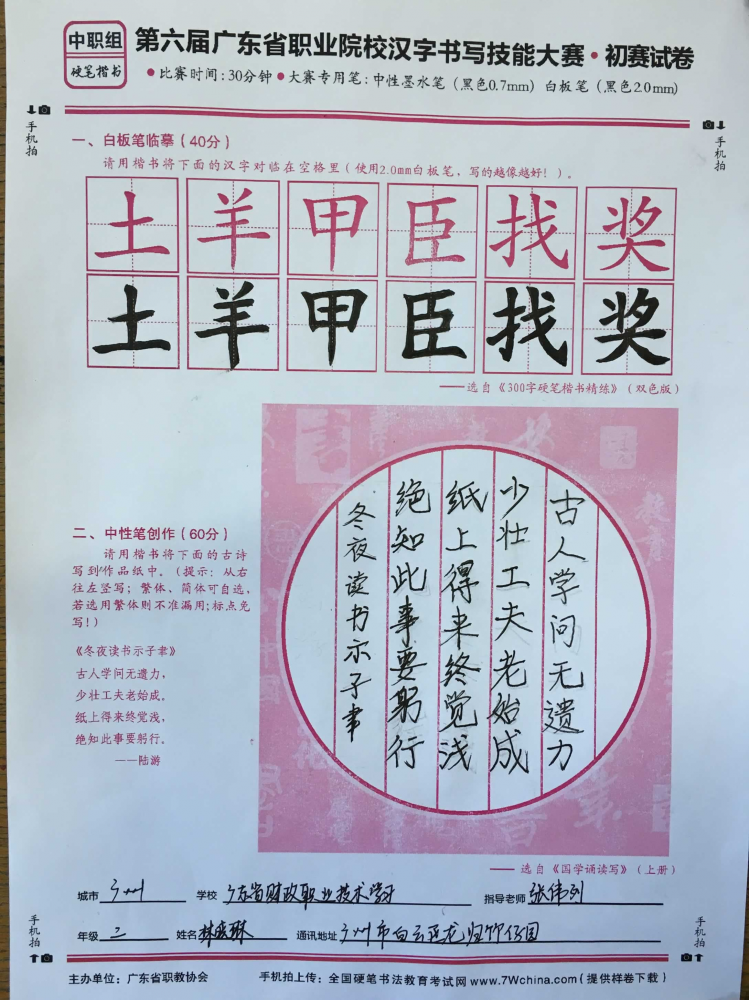 中职组
硬笔楷书
第六届广东省职业院校汉字书写技能大赛·初赛试卷
●比赛时间:30分钟●大赛专用笔:中性墨水笔(黑色0.7mm) 白板笔(黑色2.0mm)
手机拍
手机拍
一、白板笔临摹(40分)
请用楷书将下面的汉字对临在空格里(使用2.0mm白板笔,写的越像越好!)。
土羊甲臣找奖
土羊甲臣找奖
——选自《300字硬笔楷书精练》(双色版)
二、中性笔创作(60分)
请用楷书将下面的古诗
写到作品纸中。(提示:从右
往左竖写;繁体、简体可自选,
若选用繁体则不准漏用;标点免
写!)
《冬夜读书示子聿》
古人学问无遗力,
少壮工夫老始成。
纸上得来终觉浅,
绝知此事要躬行。
——陆游
古人学问无遗力
少壮工夫老始成
纸上得来终觉浅
绝知此事要躬行
冬夜读书示子聿
——选自《国学诵读写》(上册)
城市 广州 学校 广东省财政职业技术学校 指导老师 张伟列
年级 二 姓名 林 琳 通讯地址 广州市白云区龙归
手机拍
手机拍
主办单位:广东省职教协会 手机拍上传:全国硬笔书法教育考试网www.7Wchina.com(提供样卷下载)